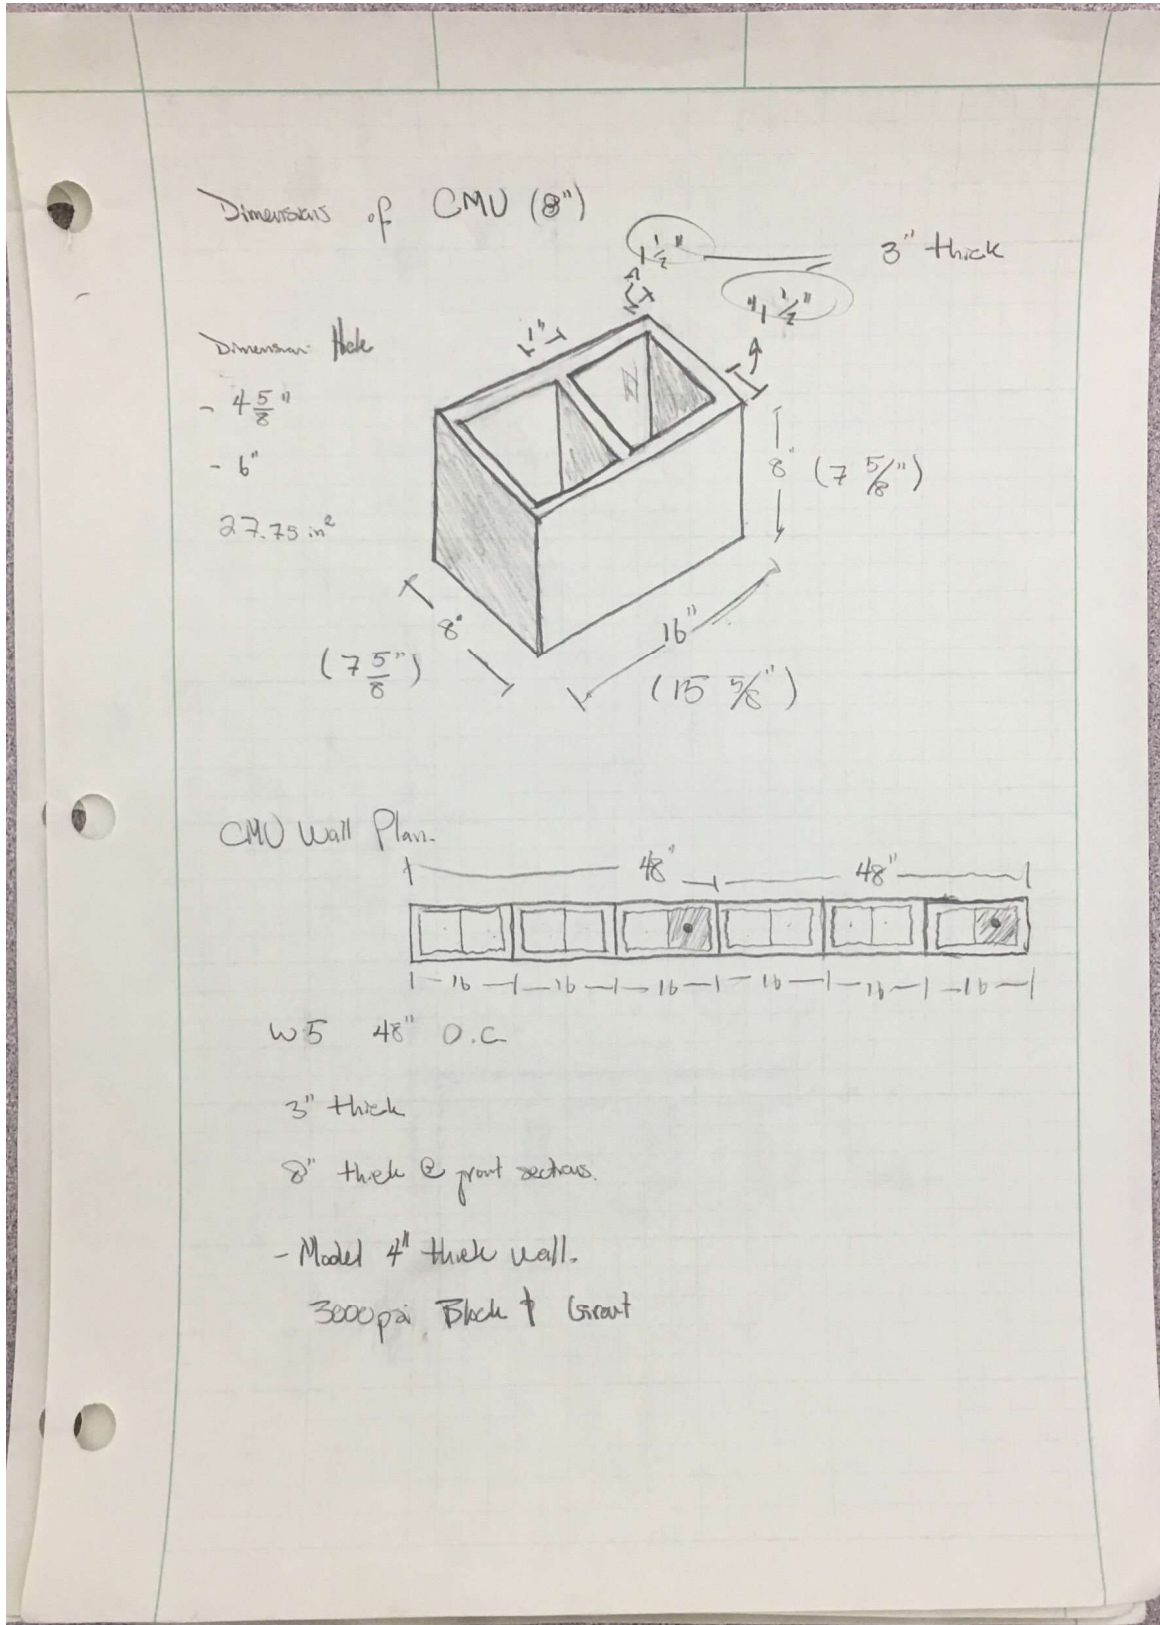 Dimensions of CMU (8")
1 1/2"
3" thick
"1 1/2"
1"
Dimension Hole
- 4 5/8"
- 6"
27.75 in²
8" (7 5/8")
8"
(7 5/8")
16"
(15 5/8")
CMU Wall Plan.
48" 48"
16 16 16 16 16 16
W5 48" O.C.
3" thick
8" thick @ grout sections.
- Model 4" thick wall.
3000psi Block & Grout